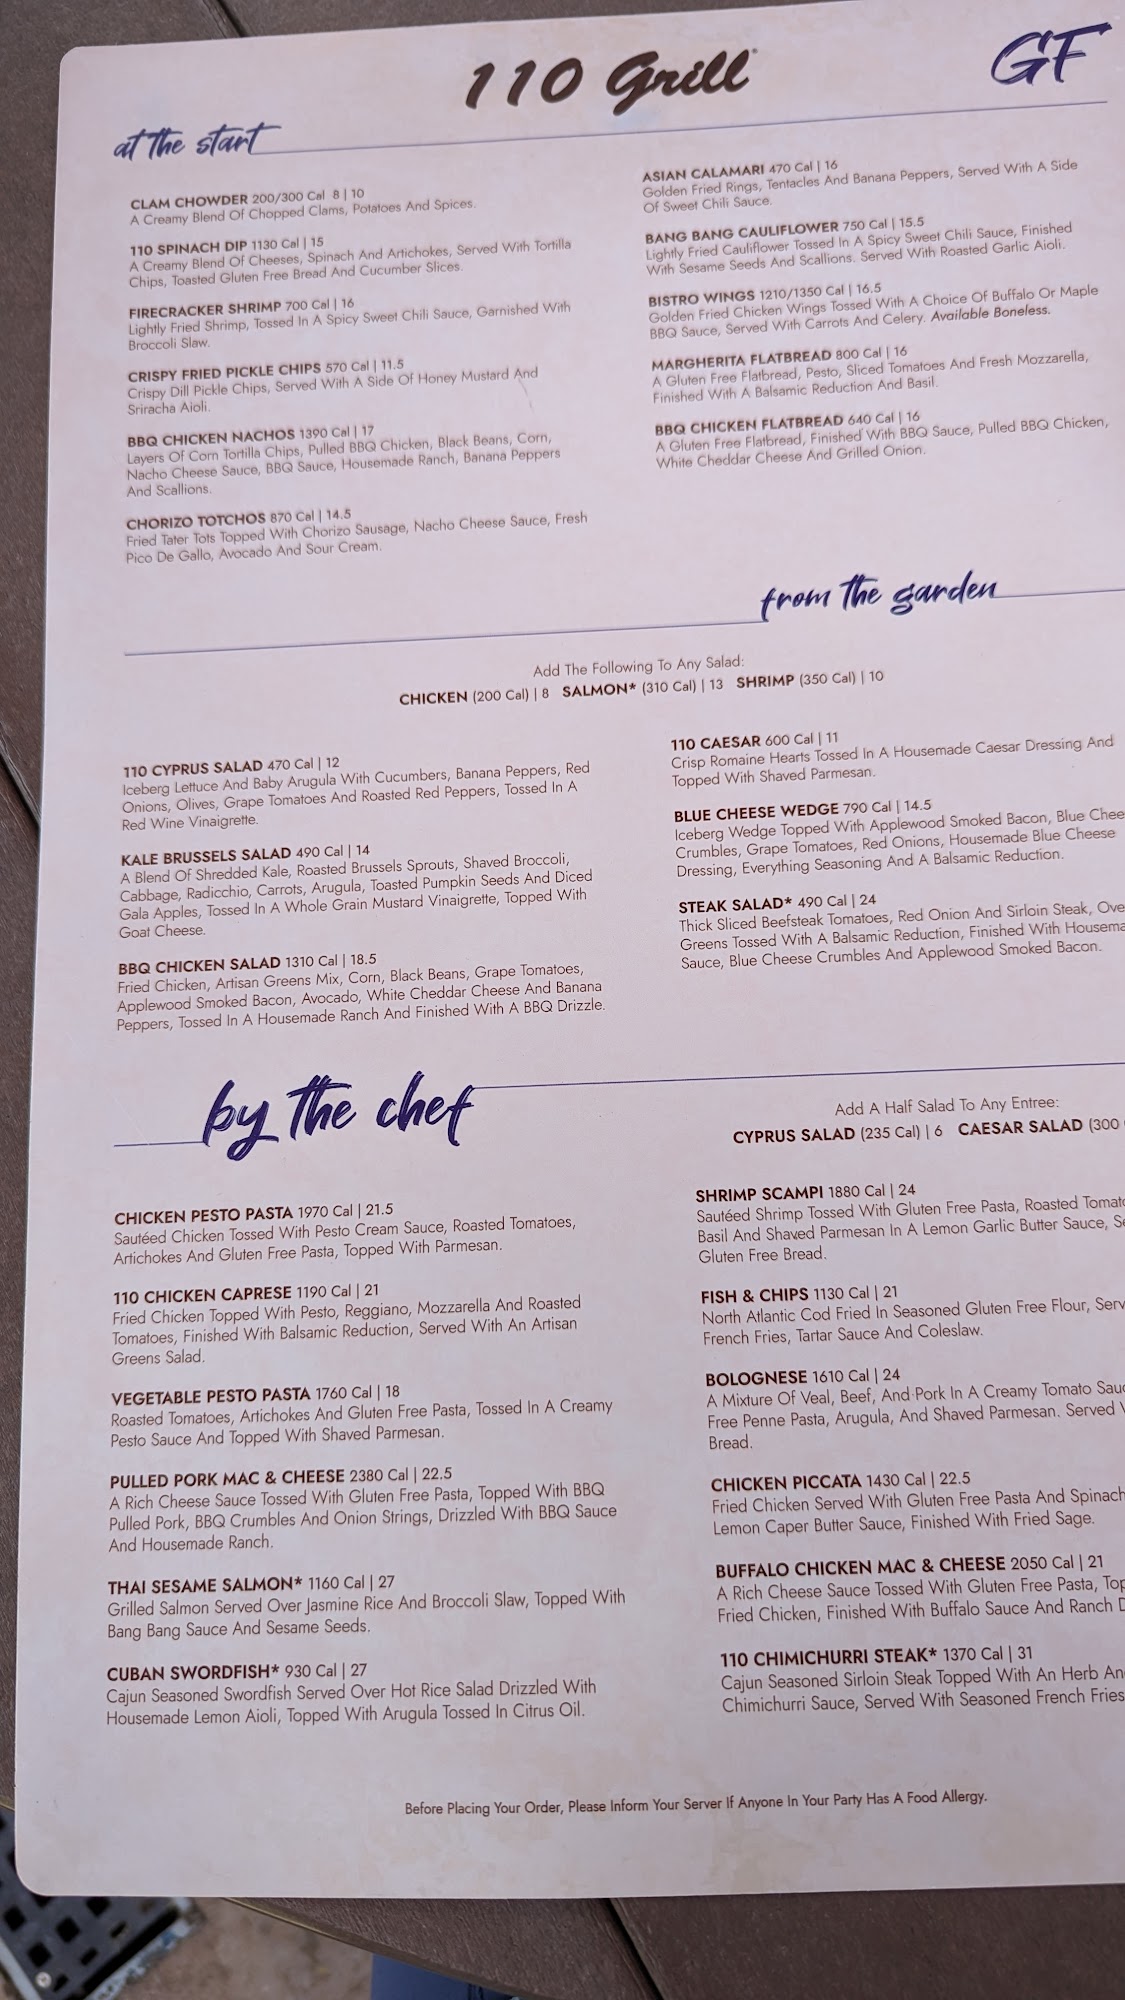 110 Grill
GF
at the start
CLAM CHOWDER 200/300 Cal 8 | 10
A Creamy Blend Of Chopped Clams, Potatoes And Spices.
110 SPINACH DIP 1130 Cal | 15
A Creamy Blend Of Cheeses, Spinach And Artichokes, Served With Tortilla
Chips, Toasted Gluten Free Bread And Cucumber Slices.
FIRECRACKER SHRIMP 700 Cal | 16
Lightly Fried Shrimp, Tossed In A Spicy Sweet Chili Sauce, Garnished With
Broccoli Slaw.
CRISPY FRIED PICKLE CHIPS 570 Cal | 11.5
Crispy Dill Pickle Chips, Served With A Side Of Honey Mustard And
Sriracha Aioli.
BBQ CHICKEN NACHOS 1390 Cal | 17
Layers Of Corn Tortilla Chips, Pulled BBQ Chicken, Black Beans, Corn,
Nacho Cheese Sauce, BBQ Sauce, Housemade Ranch, Banana Peppers
And Scallions.
CHORIZO TOTCHOS 870 Cal | 14.5
Fried Tater Tots Topped With Chorizo Sausage, Nacho Cheese Sauce, Fresh
Pico De Gallo, Avocado And Sour Cream.
ASIAN CALAMARI 470 Cal | 16
Golden Fried Rings, Tentacles And Banana Peppers, Served With A Side
Of Sweet Chili Sauce.
BANG BANG CAULIFLOWER 750 Cal | 15.5
Lightly Fried Cauliflower Tossed In A Spicy Sweet Chili Sauce, Finished
With Sesame Seeds And Scallions. Served With Roasted Garlic Aioli.
BISTRO WINGS 1210/1350 Cal | 16.5
Golden Fried Chicken Wings Tossed With A Choice Of Buffalo Or Maple
BBQ Sauce, Served With Carrots And Celery. Available Boneless.
MARGHERITA FLATBREAD 800 Cal | 16
A Gluten Free Flatbread, Pesto, Sliced Tomatoes And Fresh Mozzarella,
Finished With A Balsamic Reduction And Basil.
BBQ CHICKEN FLATBREAD 640 Cal | 16
A Gluten Free Flatbread, Finished With BBQ Sauce, Pulled BBQ Chicken,
White Cheddar Cheese And Grilled Onion.
from the garden
Add The Following To Any Salad:
CHICKEN (200 Cal) | 8 SALMON* (310 Cal) | 13 SHRIMP (350 Cal) | 10
110 CYPRUS SALAD 470 Cal | 12
Iceberg Lettuce And Baby Arugula With Cucumbers, Banana Peppers, Red
Onions, Olives, Grape Tomatoes And Roasted Red Peppers, Tossed In A
Red Wine Vinaigrette.
KALE BRUSSELS SALAD 490 Cal | 14
A Blend Of Shredded Kale, Roasted Brussels Sprouts, Shaved Broccoli,
Cabbage, Radicchio, Carrots, Arugula, Toasted Pumpkin Seeds And Diced
Gala Apples, Tossed In A Whole Grain Mustard Vinaigrette, Topped With
Goat Cheese.
BBQ CHICKEN SALAD 1310 Cal | 18.5
Fried Chicken, Artisan Greens Mix, Corn, Black Beans, Grape Tomatoes,
Applewood Smoked Bacon, Avocado, White Cheddar Cheese And Banana
Peppers, Tossed In A Housemade Ranch And Finished With A BBQ Drizzle.
110 CAESAR 600 Cal | 11
Crisp Romaine Hearts Tossed In A Housemade Caesar Dressing And
Topped With Shaved Parmesan.
BLUE CHEESE WEDGE 790 Cal | 14.5
Iceberg Wedge Topped With Applewood Smoked Bacon, Blue Chee
Crumbles, Grape Tomatoes, Red Onions, Housemade Blue Cheese
Dressing, Everything Seasoning And A Balsamic Reduction.
STEAK SALAD* 490 Cal | 24
Thick Sliced Beefsteak Tomatoes, Red Onion And Sirloin Steak, Ove
Greens Tossed With A Balsamic Reduction, Finished With Housema
Sauce, Blue Cheese Crumbles And Applewood Smoked Bacon.
by the chef
Add A Half Salad To Any Entree:
CYPRUS SALAD (235 Cal) | 6 CAESAR SALAD (300
CHICKEN PESTO PASTA 1970 Cal | 21.5
Sautéed Chicken Tossed With Pesto Cream Sauce, Roasted Tomatoes,
Artichokes And Gluten Free Pasta, Topped With Parmesan.
110 CHICKEN CAPRESE 1190 Cal | 21
Fried Chicken Topped With Pesto, Reggiano, Mozzarella And Roasted
Tomatoes, Finished With Balsamic Reduction, Served With An Artisan
Greens Salad.
VEGETABLE PESTO PASTA 1760 Cal | 18
Roasted Tomatoes, Artichokes And Gluten Free Pasta, Tossed In A Creamy
Pesto Sauce And Topped With Shaved Parmesan.
PULLED PORK MAC & CHEESE 2380 Cal | 22.5
A Rich Cheese Sauce Tossed With Gluten Free Pasta, Topped With BBQ
Pulled Pork, BBQ Crumbles And Onion Strings, Drizzled With BBQ Sauce
And Housemade Ranch.
THAI SESAME SALMON* 1160 Cal | 27
Grilled Salmon Served Over Jasmine Rice And Broccoli Slaw, Topped With
Bang Bang Sauce And Sesame Seeds.
CUBAN SWORDFISH* 930 Cal | 27
Cajun Seasoned Swordfish Served Over Hot Rice Salad Drizzled With
Housemade Lemon Aioli, Topped With Arugula Tossed In Citrus Oil.
SHRIMP SCAMPI 1880 Cal | 24
Sautéed Shrimp Tossed With Gluten Free Pasta, Roasted Tomato
Basil And Shaved Parmesan In A Lemon Garlic Butter Sauce, Se
Gluten Free Bread.
FISH & CHIPS 1130 Cal | 21
North Atlantic Cod Fried In Seasoned Gluten Free Flour, Serv
French Fries, Tartar Sauce And Coleslaw.
BOLOGNESE 1610 Cal | 24
A Mixture Of Veal, Beef, And Pork In A Creamy Tomato Sauc
Free Penne Pasta, Arugula, And Shaved Parmesan. Served
Bread.
CHICKEN PICCATA 1430 Cal | 22.5
Fried Chicken Served With Gluten Free Pasta And Spinach
Lemon Caper Butter Sauce, Finished With Fried Sage.
BUFFALO CHICKEN MAC & CHEESE 2050 Cal | 21
A Rich Cheese Sauce Tossed With Gluten Free Pasta, Top
Fried Chicken, Finished With Buffalo Sauce And Ranch D
110 CHIMICHURRI STEAK* 1370 Cal | 31
Cajun Seasoned Sirloin Steak Topped With An Herb An
Chimichurri Sauce, Served With Seasoned French Fries
Before Placing Your Order, Please Inform Your Server If Anyone In Your Party Has A Food Allergy.